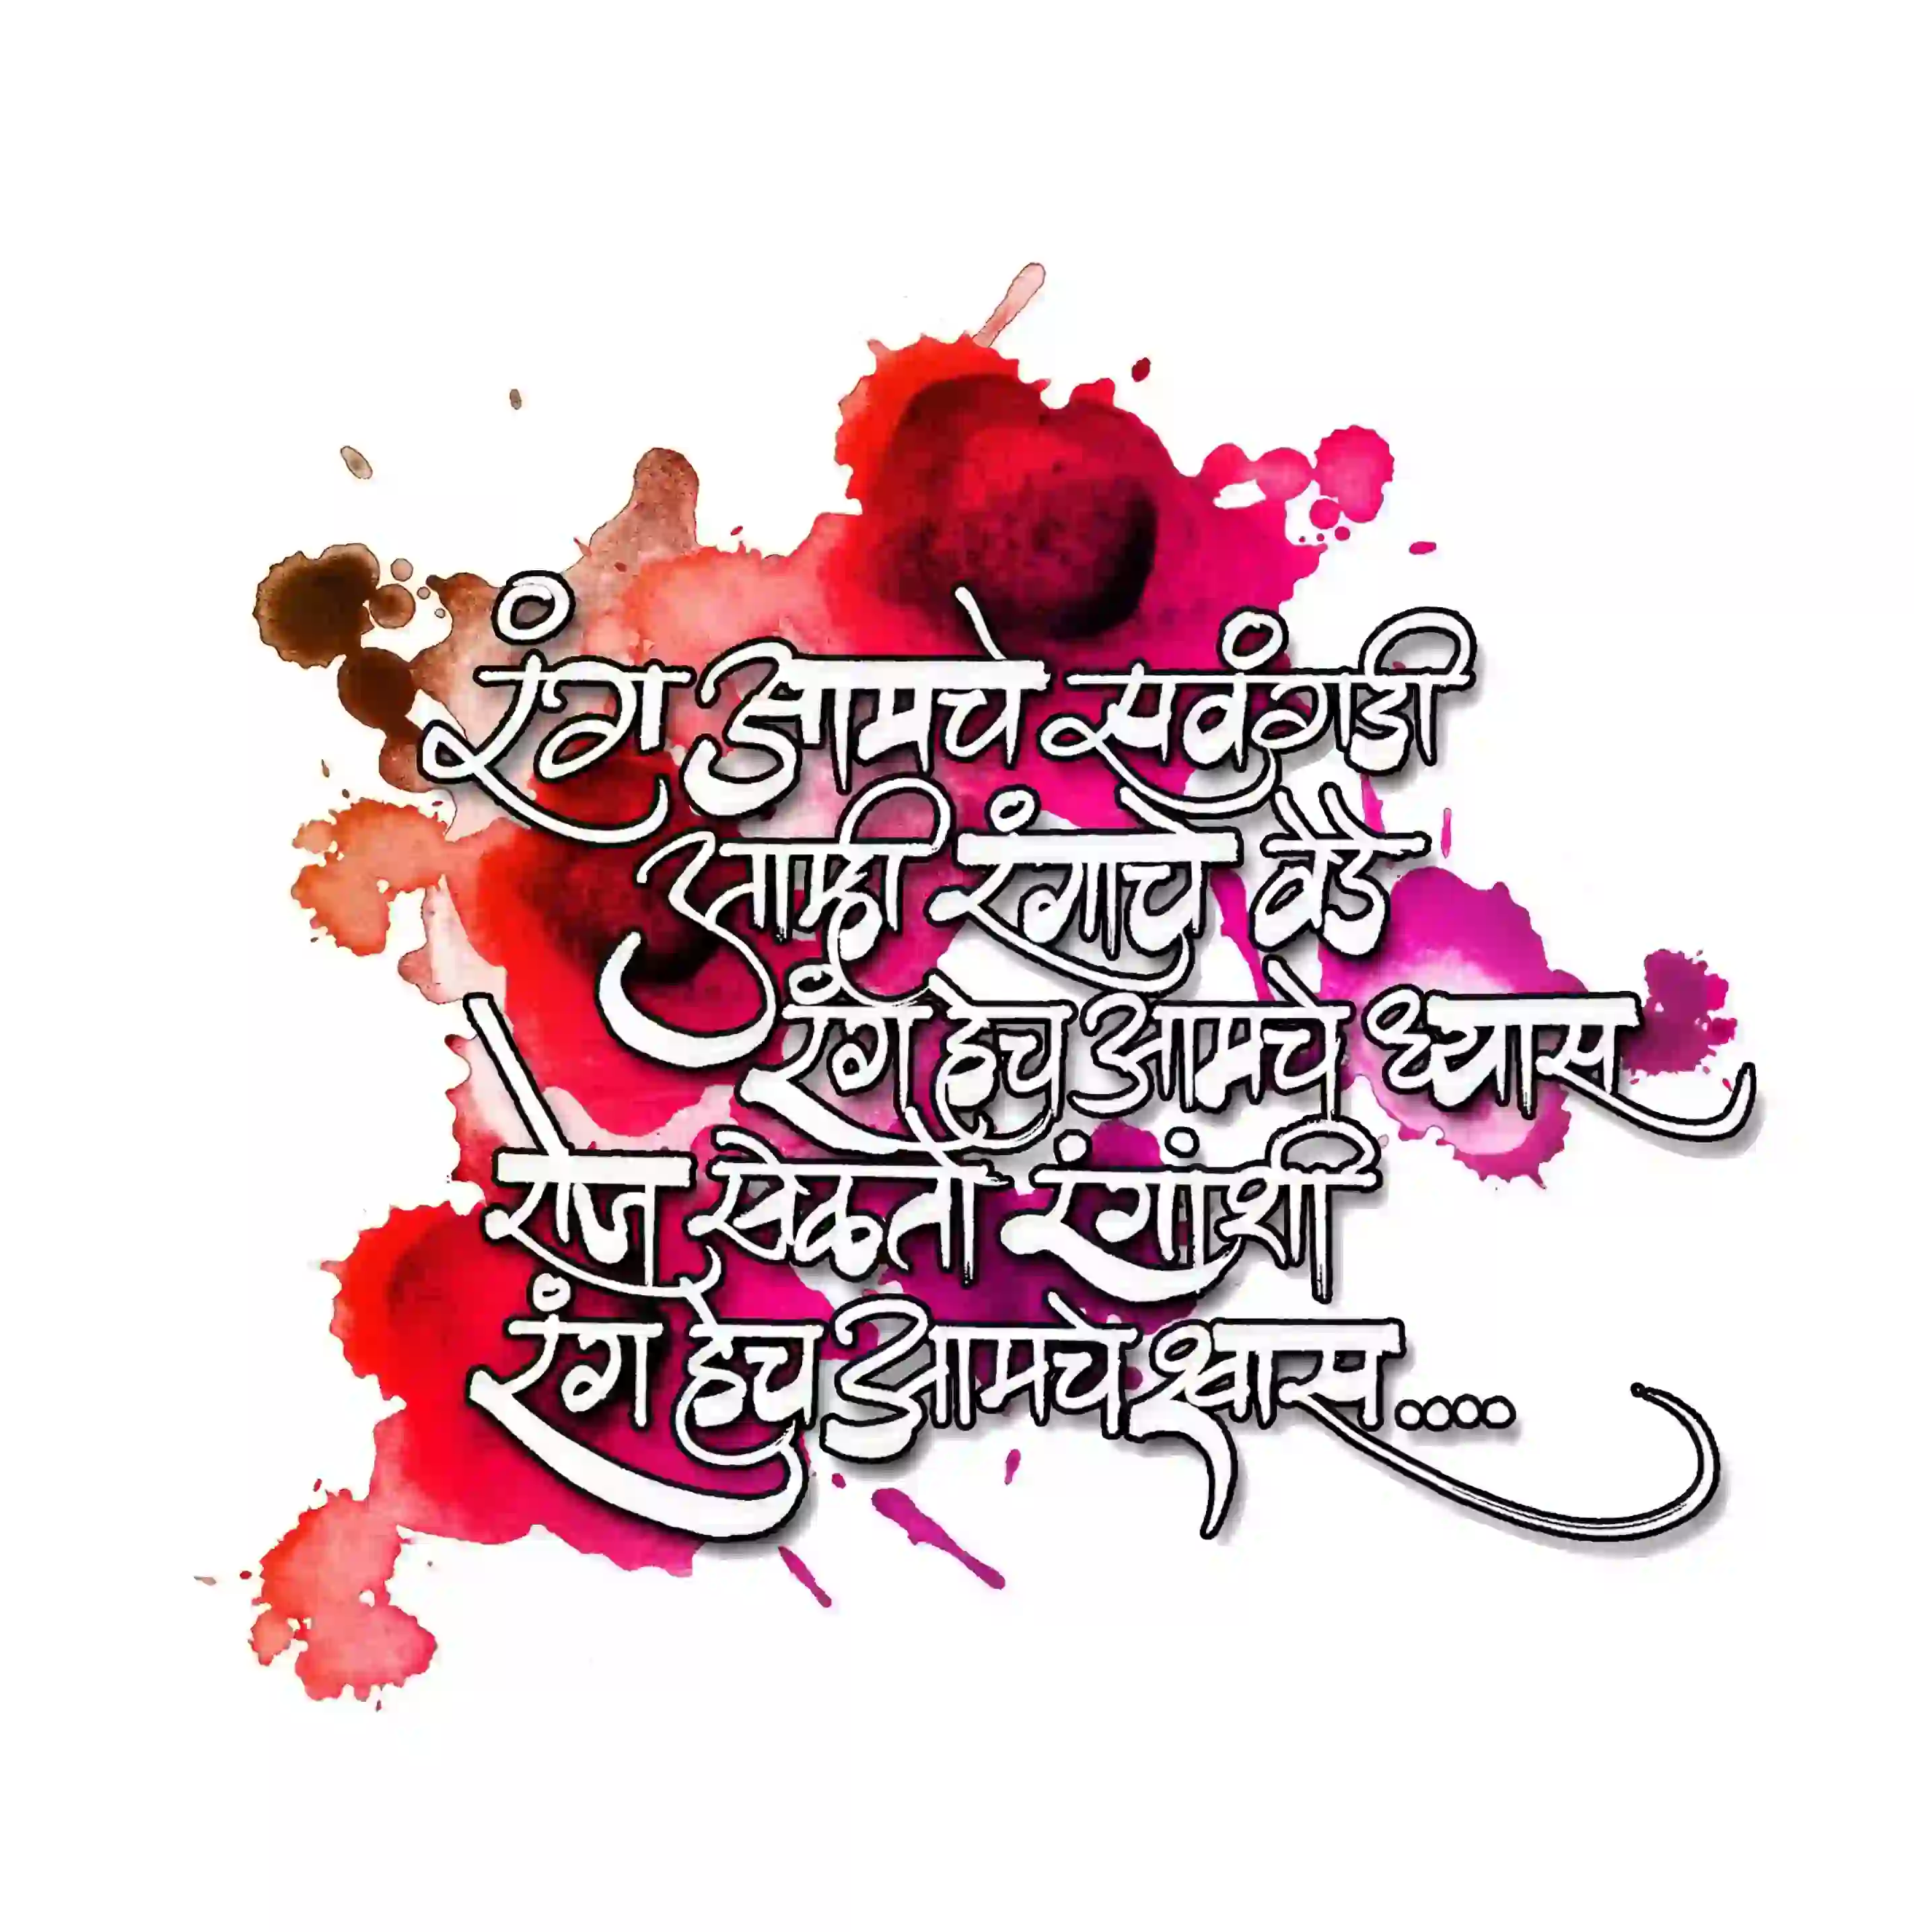 रंग आमचे सवंगडी
आम्ही रंगाचे वेडे
रंग हेच आमचे ध्यास
रोज खेळतो रंगांशी
रंग हेच आमचे श्वास....